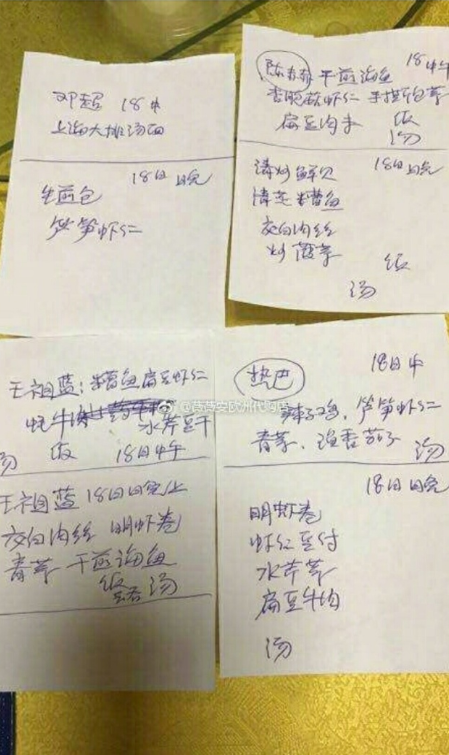 邓超 18中
上海大排汤面
18日晚
生煎包
芦笋虾仁
18中午
干煎海鱼
虾仁
扁豆肉丝 饭
汤
清炒鲜贝 18日晚
清蒸糟鱼
交白肉丝
炒菠菜
饭
汤
王祖蓝:糟鱼扁豆虾仁
蚝牛
水芹豆干
汤 饭 18日中午
王祖蓝 18日日晚上
交白肉丝 明虾卷
青菜 干煎海鱼
饭 汤
热巴 18日中
辣子鸡、芦笋虾仁
青菜、鱼香茄子 汤
18日晚
明虾卷
虾仁豆付
水芹菜
扁豆牛肉
汤